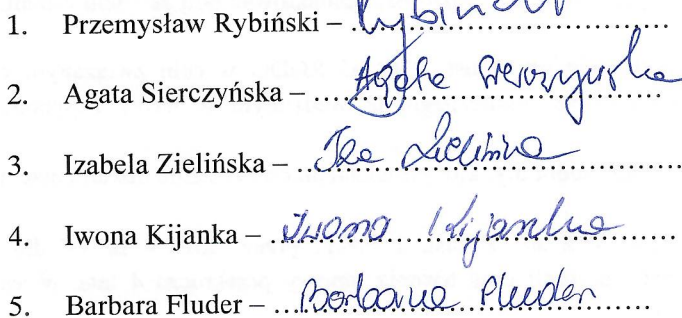 1. Przemysław Rybiński – Rybiński
2. Agata Sierczyńska – Agata Sierczyńska
3. Izabela Zielińska – Iza Zielińska
4. Iwona Kijanka – Iwona Kijanka
5. Barbara Fluder – Barbara Fluder